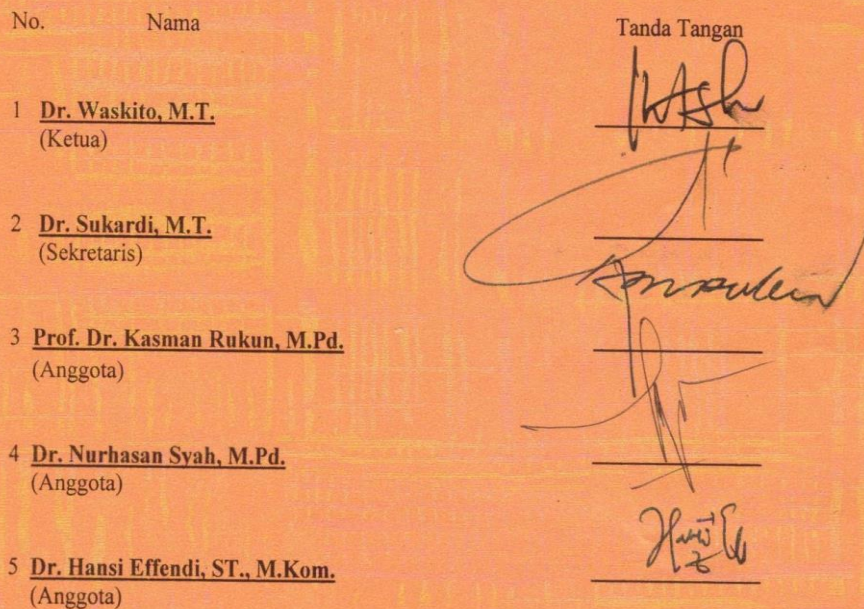 No. Nama Tanda Tangan
1 Dr. Waskito, M.T.
(Ketua)
2 Dr. Sukardi, M.T.
(Sekretaris)
3 Prof. Dr. Kasman Rukun, M.Pd.
(Anggota)
4 Dr. Nurhasan Syah, M.Pd.
(Anggota)
5 Dr. Hansi Effendi, ST., M.Kom.
(Anggota)